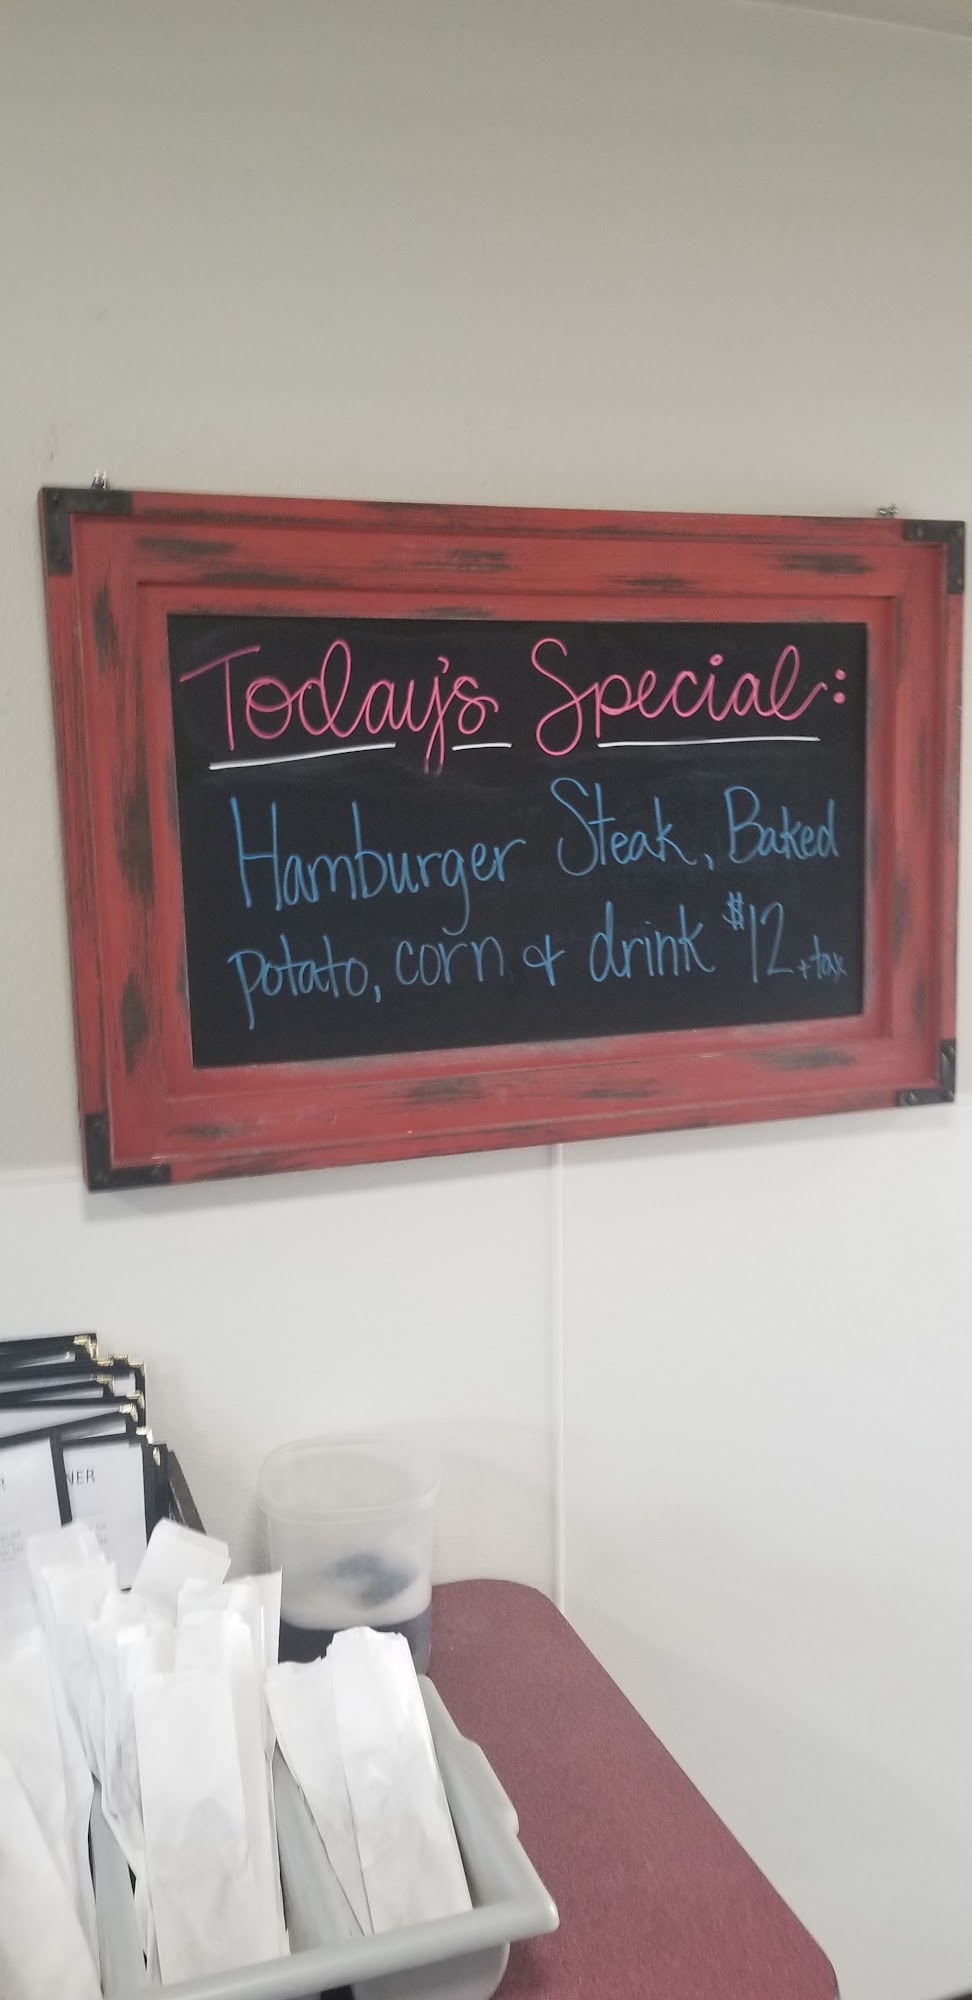 Today's Special:
Hamburger Steak, Baked
potato, corn & drink $12 + tax